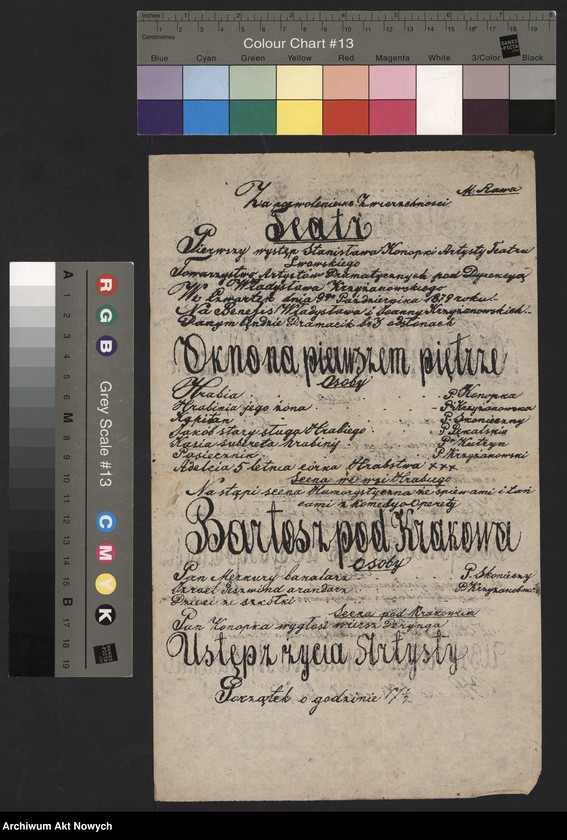 Inches 1 2 3 4 5 6 7 8
Centimetres 1 2 3 4 5 6 7 8 9 10 11 12 13 14 15 16 17 18 19
Colour Chart #13
DANES PICTA
Blue Cyan Green Yellow Red Magenta White 3/Color Black
R G B
Grey Scale #13
C M Y K
A 1 2 3 4 5 6 M 8 9 10 11 12 13 14 15 B 17 18 19
1
M. Rawa
Za pozwoleniem Zwierzchności
Teatr
Pierwszy występ Stanisława Konopki Artysty Teatru
Lwowskiego
Towarzystwo Artystów Dramatycznych pod Dyrencyą
Władysława Krzyżanowskiego
We Czwartek dnia 9go Października 1879 roku.
Na Benefis Władysława i Joanny Krzyżanowskich.
Danym będzie Dramacik w 3 odsłonach
Okno na pierwszem piętrze
Osoby
Hrabia P. Konopka
Hrabinia jego żona P. Krzyżanowska
Kapitan P. Skonieczny
Jakób stary sługa Hrabiego P. Pekalski
Kasia subretа hrabiny
Pasiecznik P. Krzyżanowski
Adelcia 5 letnia córka Hrabstwa xxx
Scena we wsi Hrabiego
Nastąpi scena Humorystyczna ze śpiewami i tań
cami z Komedyo-Operety
Bartosz pod Krakowa
Osoby
Pan Merkury P. Skonieczny
P. Krzyżanowski
Dzieci ze szkółki
Scena pod Krakowem
Pan Konopka wygłosi wiersz
Ustęp z życia Artysty
Początek o godzinie 7½
Archiwum Akt Nowych